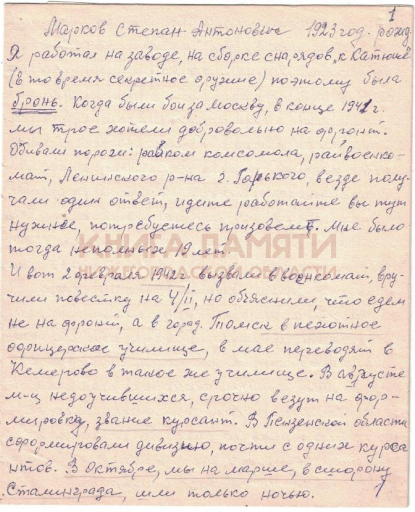 1
Марков Степан Антонович 1923 год. рожд.
Я работал на заводе, на сборке снарядов, к Катюше
(в то время секретное оружие) поэтому была
бронь. Когда были бои за Москву, в конце 1941 г.
мы трое хотели добровольно на фронт.
Обивали пороги: райком комсомола, райвоенко-
мат, Ленинского р-на г. Горького, везде полу-
чали один ответ, идите работайте вы тут
нужнее, потребуетесь призовем. Мне было
тогда неполных 19 лет.
КНИГА ПАМЯТИ
И вот 2 февраля 1942 г. вызвали в военкомат, вру-
чили повестку на 4/II, но объяснили, что едем
не на фронт, а в город. Томск в пехотное
офицерское училище, в мае переводят в
Кемерово в такое же училище. В августе
м-ц недоучившихся, срочно везут на фор-
мировку, звание курсант. В Пензенской области
сформировали дивизию, почти с одних курса
нтов. В Октябре, мы на марше, в сторону
Сталинграда, шли только ночью.
1